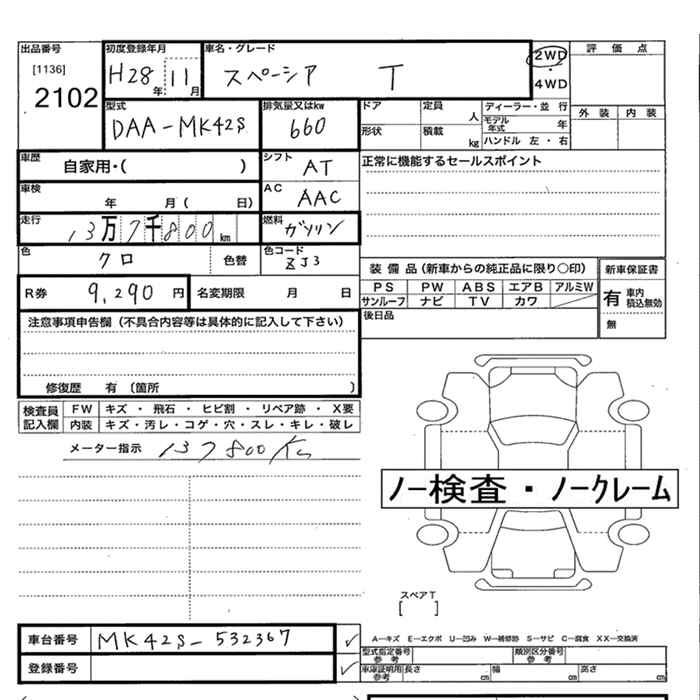 出品番号 初度登録年月 車名・グレード 2WD 評価点
[1136] H28年 11月 スペーシア T ・ 4WD
2102
型式 排気量又はkw ドア 定員 人 ディーラー・並行 外装 内装
DAA-MK42S 660 モデル年式 年
形状 積載 kg ハンドル 左・右
車歴 自家用・( ) シフト AT 正常に機能するセールスポイント
車検 年 月( 日) AC AAC
走行 13万7千800km 燃料 ガソリン
色 クロ 色替 色コード ZJ3
装備品(新車からの純正品に限り○印) 新車保証書
R券 9,290円 名変期限 月 日 PS PW ABS エアB アルミW 有 車内積込無効
サンルーフ ナビ TV カワ
注意事項申告欄(不具合内容等は具体的に記入して下さい) 後日品 無
修復歴 有 〔箇所 〕
検査員記入欄 FW キズ・飛石・ヒビ割・リペア跡・X要
内装 キズ・汚レ・コゲ・穴・スレ・キレ・破レ
メーター指示 137800Km
ノー検査・ノークレーム
スペアT
[ ]
車台番号 MK42S-532367 ✓ A―キズ E―エクボ U―凹み W―補修跡 S―サビ C―腐食 XX―交換済
型式指定番号 参考 類別区分番号 参考
登録番号 ✓ 車庫証明用 参考 長さ cm 幅 cm 高さ cm